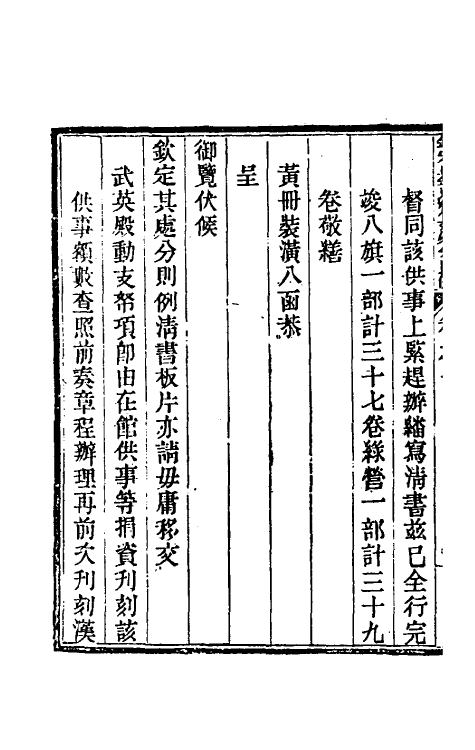 督同該供事上緊趕辦繕寫清書茲已全行完
竣八旗一部計三十七卷綠營一部計三十九
卷敬繕
黃冊裝潢八函恭
呈
御覽伏候
欽定其處分則例清書板片亦請毋庸移交
武英殿動支帑項卽由在館供事等捐資刋刻該
供事額數查照前奏章程辦理再前次刋刻漢